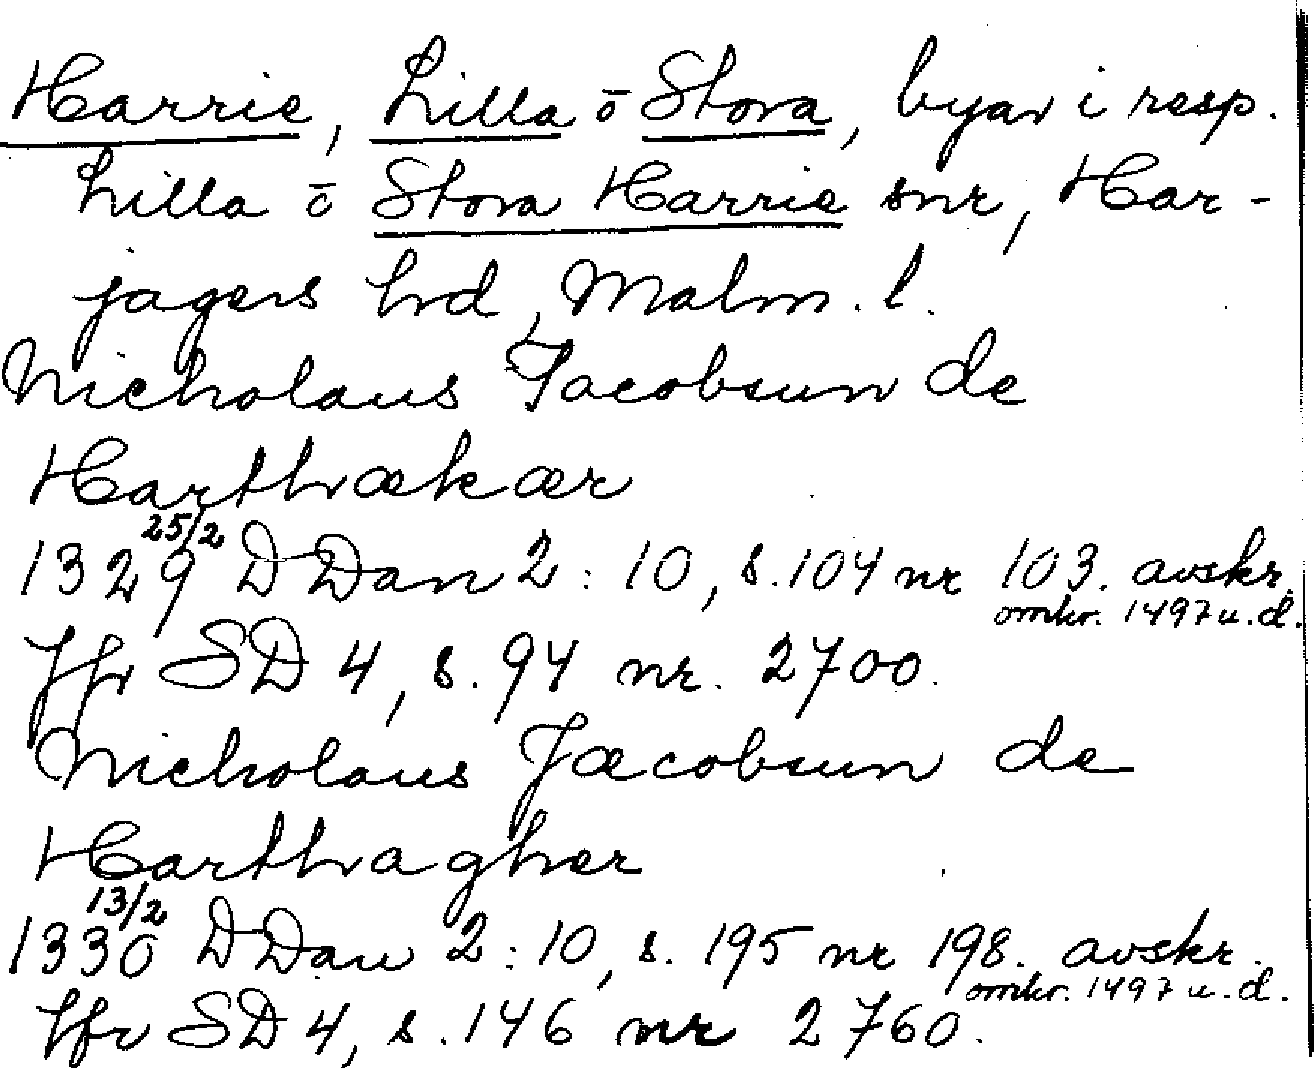 Harrie, Lilla ō Stora, byar i resp.
Lilla ō Stora Harrie snr, Har-
jagers hrd, Malm. l.
Nicholaus Jacobsun de
Harthækær
25/2
1329 DDan 2:10, s. 104 nr 103. avskr.
omkr. 1497 u. d.
Jfr SD 4, s. 94 nr. 2700.
Nicholaus Jæcobsun de
Harthagher
13/2
1330 DDan 2:10, s. 195 nr 198. avskr.
omkr. 1497 u. d.
Jfr SD 4, s. 146 nr 2760.